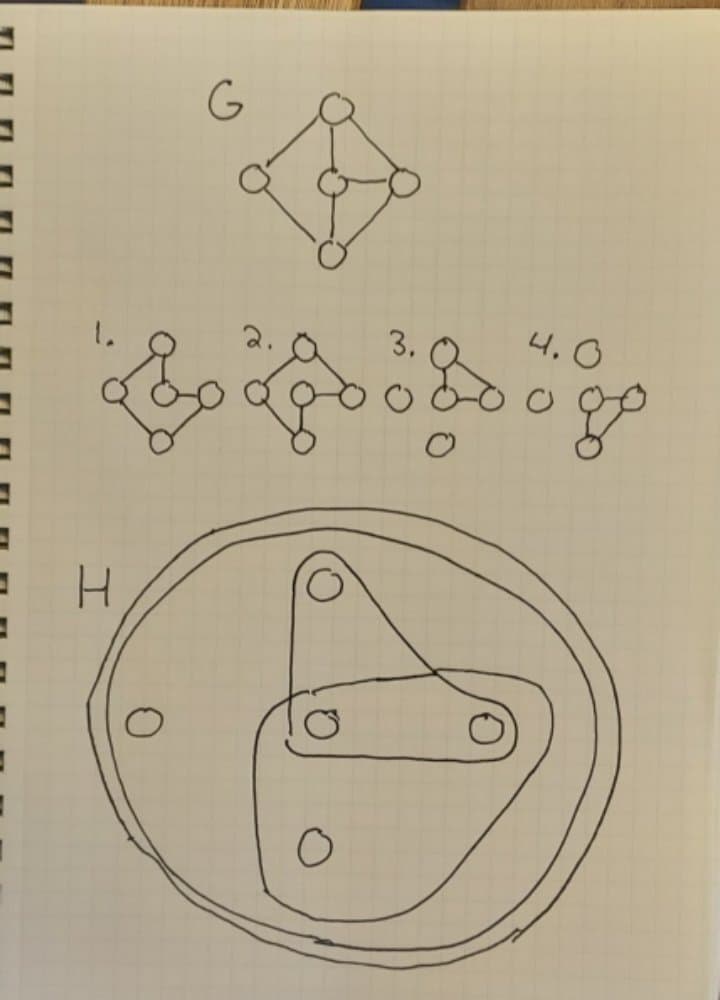 G
1. 2. 3. 4.
H